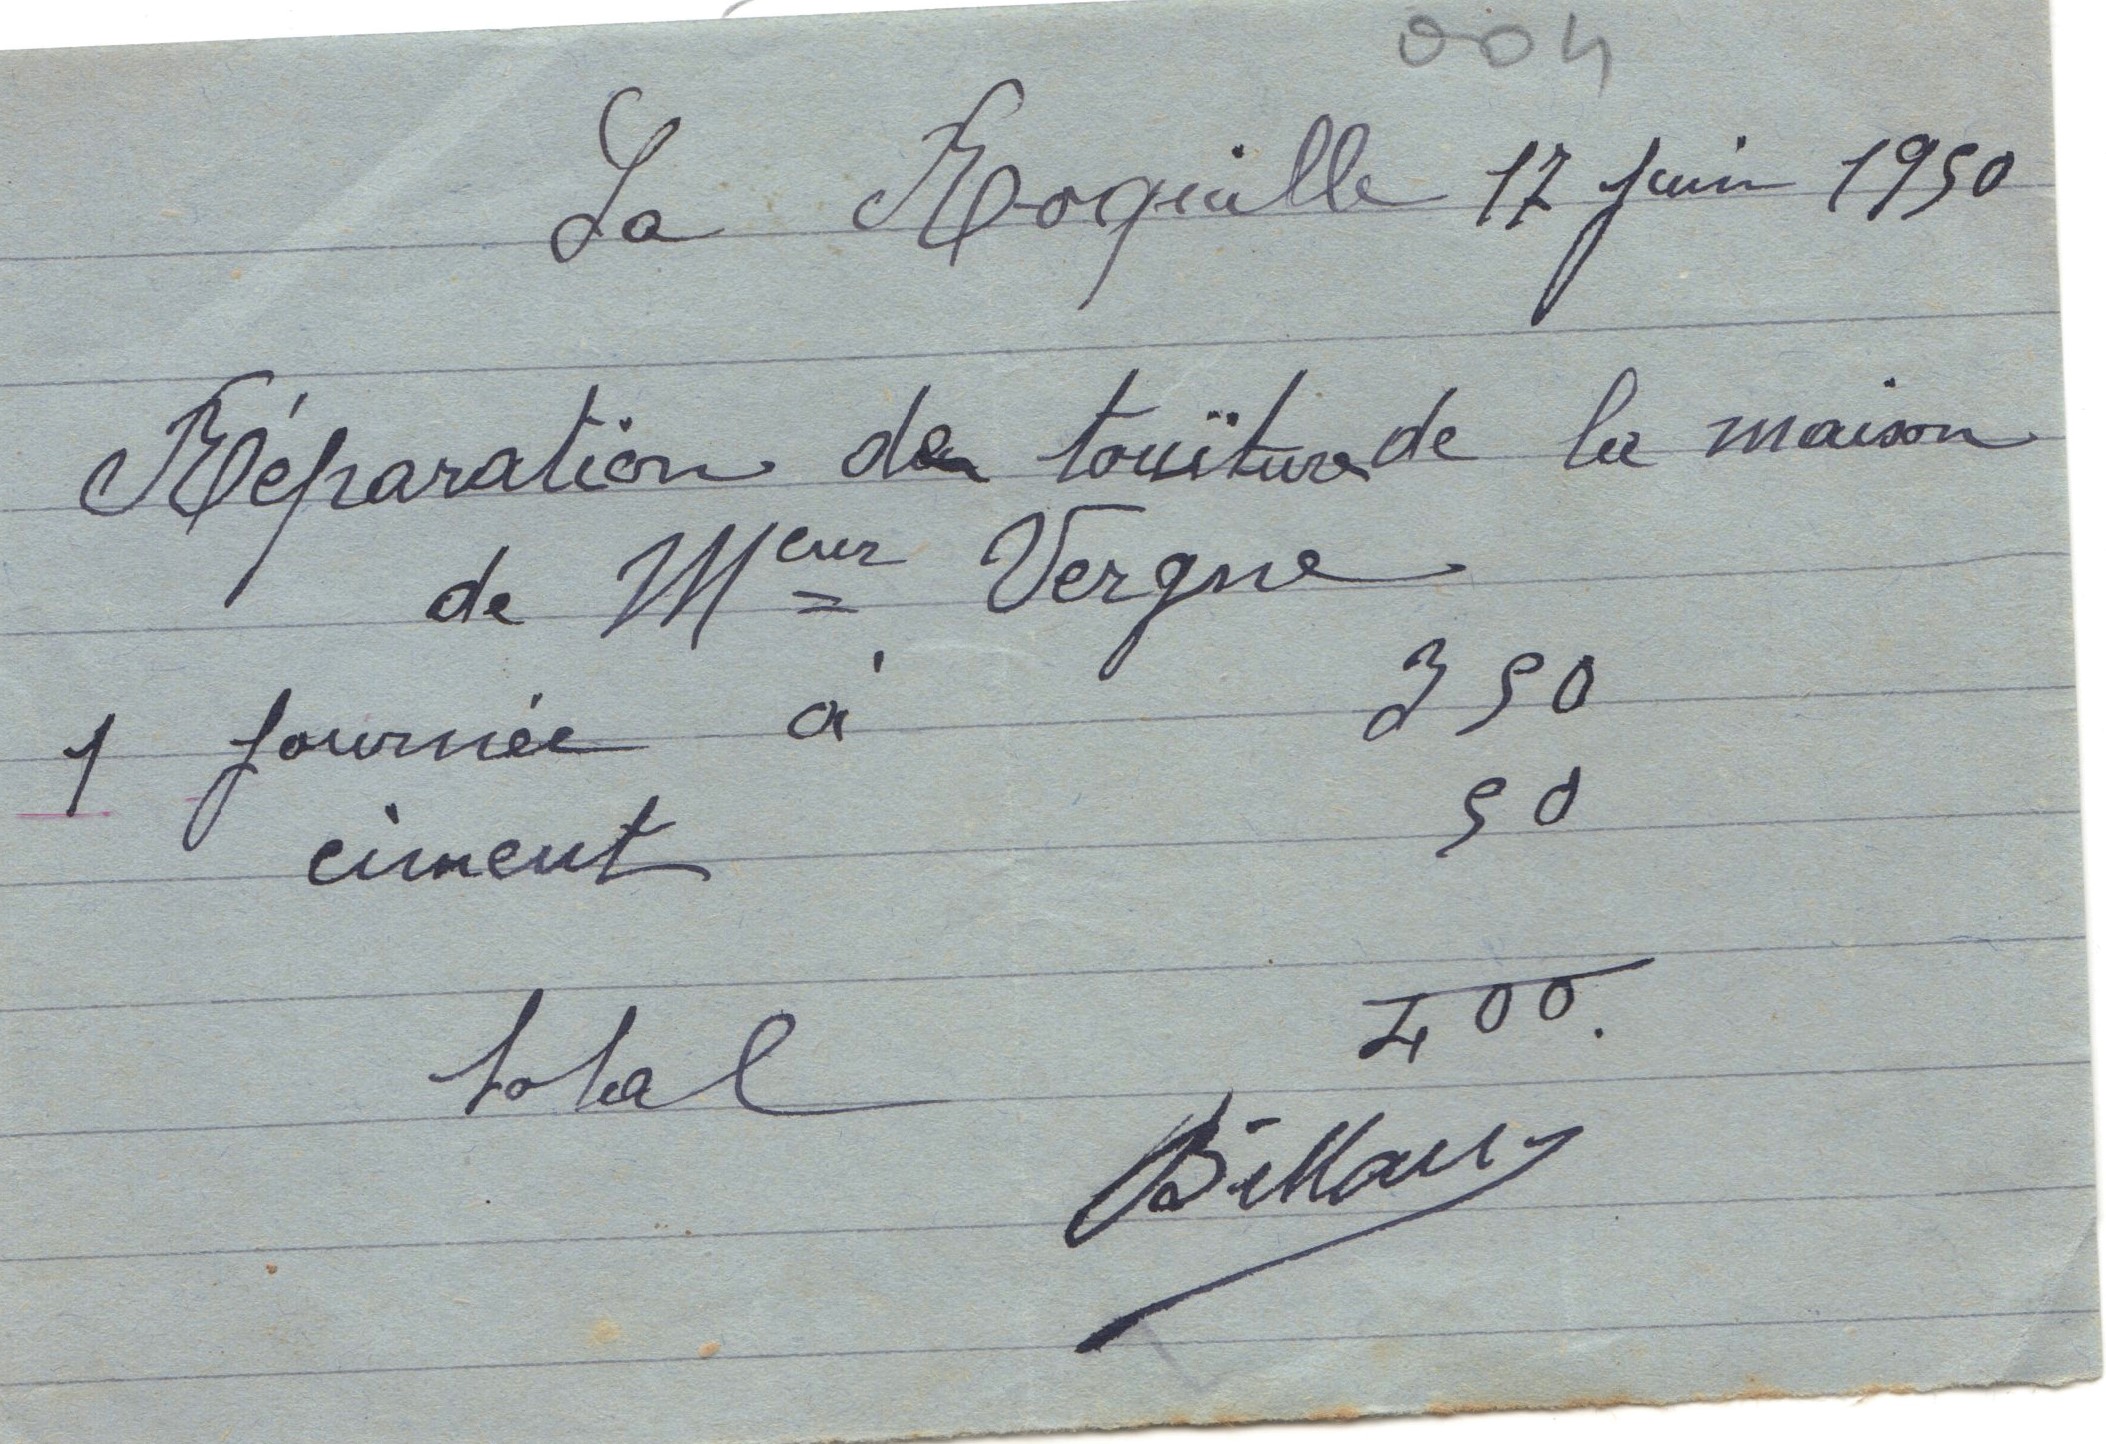 004
La Roquille 17 juin 1950
Réparation de touïture de la maison
de Meur Vergne
1 journée à 350
ciment 50
total 400.